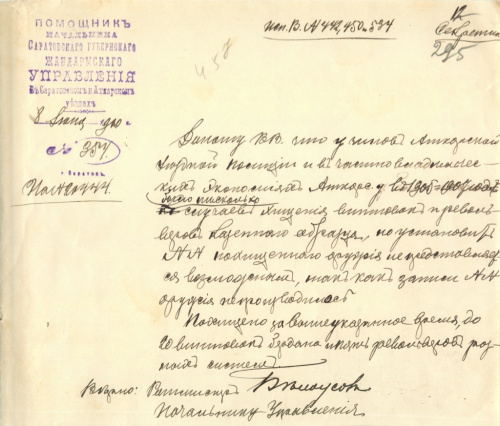 ПОМОЩНИКЪ
НАЧАЛЬНИКА
САРАТОВСКАГО ГУБЕРНСКАГО
ЖАНДАРМСКАГО
УПРАВЛЕНІЯ
ВЪ САРАТОВСКОМЪ И АТКАРСКОМЪ
УѢЗДАХЪ
8 Іюня
№ 357
г. Саратовъ
На № 444
Исп. В. № 442,450 и 537
458
12
Секретно
295
Доношу В.В. что у чиновъ Аткарской
уѣздной полиціи и въ частновладѣльчес-
кихъ экономіяхъ Аткарс. у. въ 1905-1907 годахъ
было нѣсколько
случаевъ хищенія винтовокъ и револь-
веровъ казеннаго образца, но установить
№№ похищеннаго оружія не представляет-
ся возможнымъ, такъ какъ записи №№
оружія не производилось
Похищено за вышеуказанное время, до
20 винтовокъ Бердана и револьверовъ раз-
ныхъ системъ.
Вѣрно: Ротмистръ
Начальнику Управленія